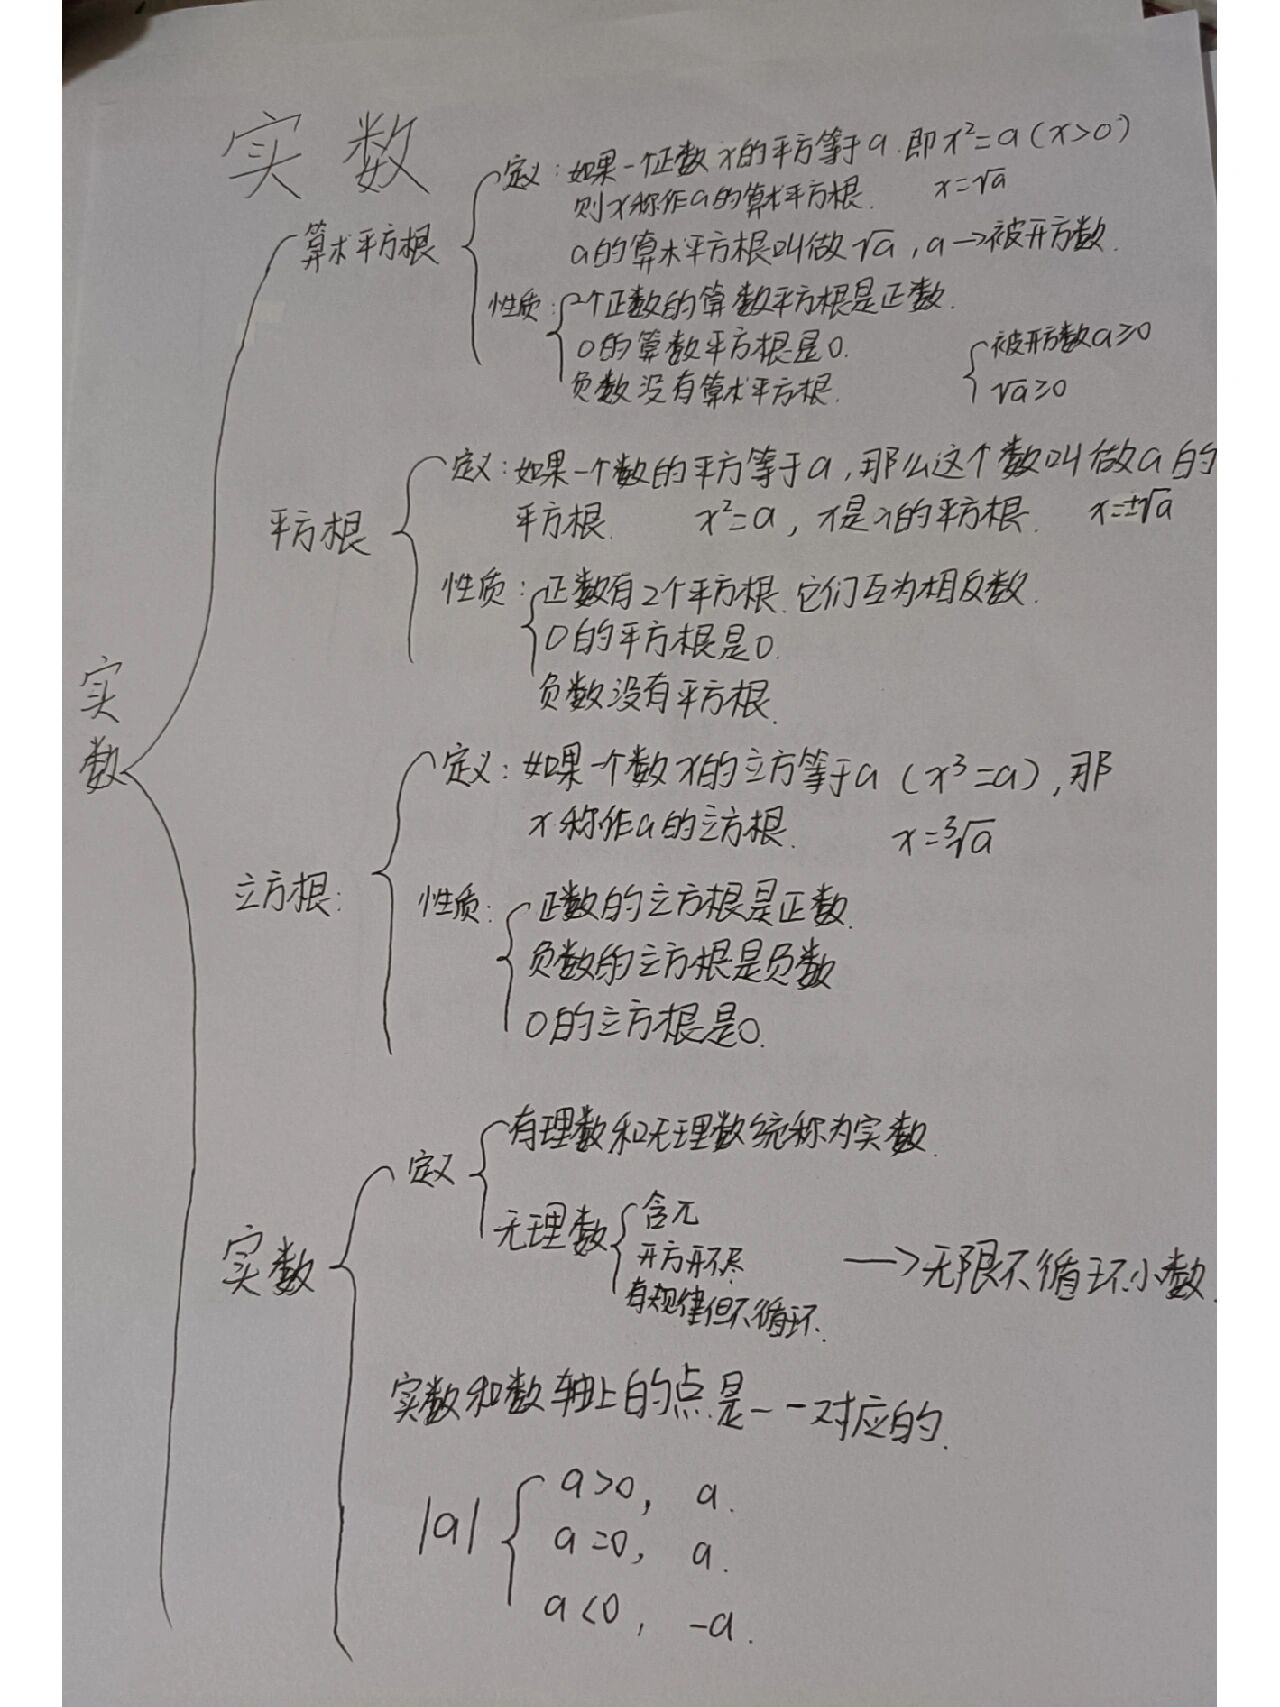 实数
定义：如果一个正数x的平方等于a.即x²=a(x>0)
则x称作a的算术平方根. x=√a
算术平方根
a的算术平方根叫做√a，a→被开方数.
性质：一个正数的算数平方根是正数.
0的算数平方根是0.
被开方数a≥0
负数没有算术平方根.
√a≥0
定义：如果一个数的平方等于a,那么这个数叫做a的
平方根. x²=a，x是a的平方根. x=±√a
平方根
性质：正数有2个平方根.它们互为相反数.
0的平方根是0.
负数没有平方根.
实数
定义：如果一个数x的立方等于a（x³=a），那
x称作a的立方根. x=³√a
立方根：
性质：正数的立方根是正数.
负数的立方根是负数
0的立方根是0.
有理数和无理数统称为实数.
定义
无理数
含π
开方开不尽
有规律但不循环.
→无限不循环小数.
实数
实数和数轴上的点是一一对应的.
|a|
a>0， a.
a=0， a.
a<0， -a.